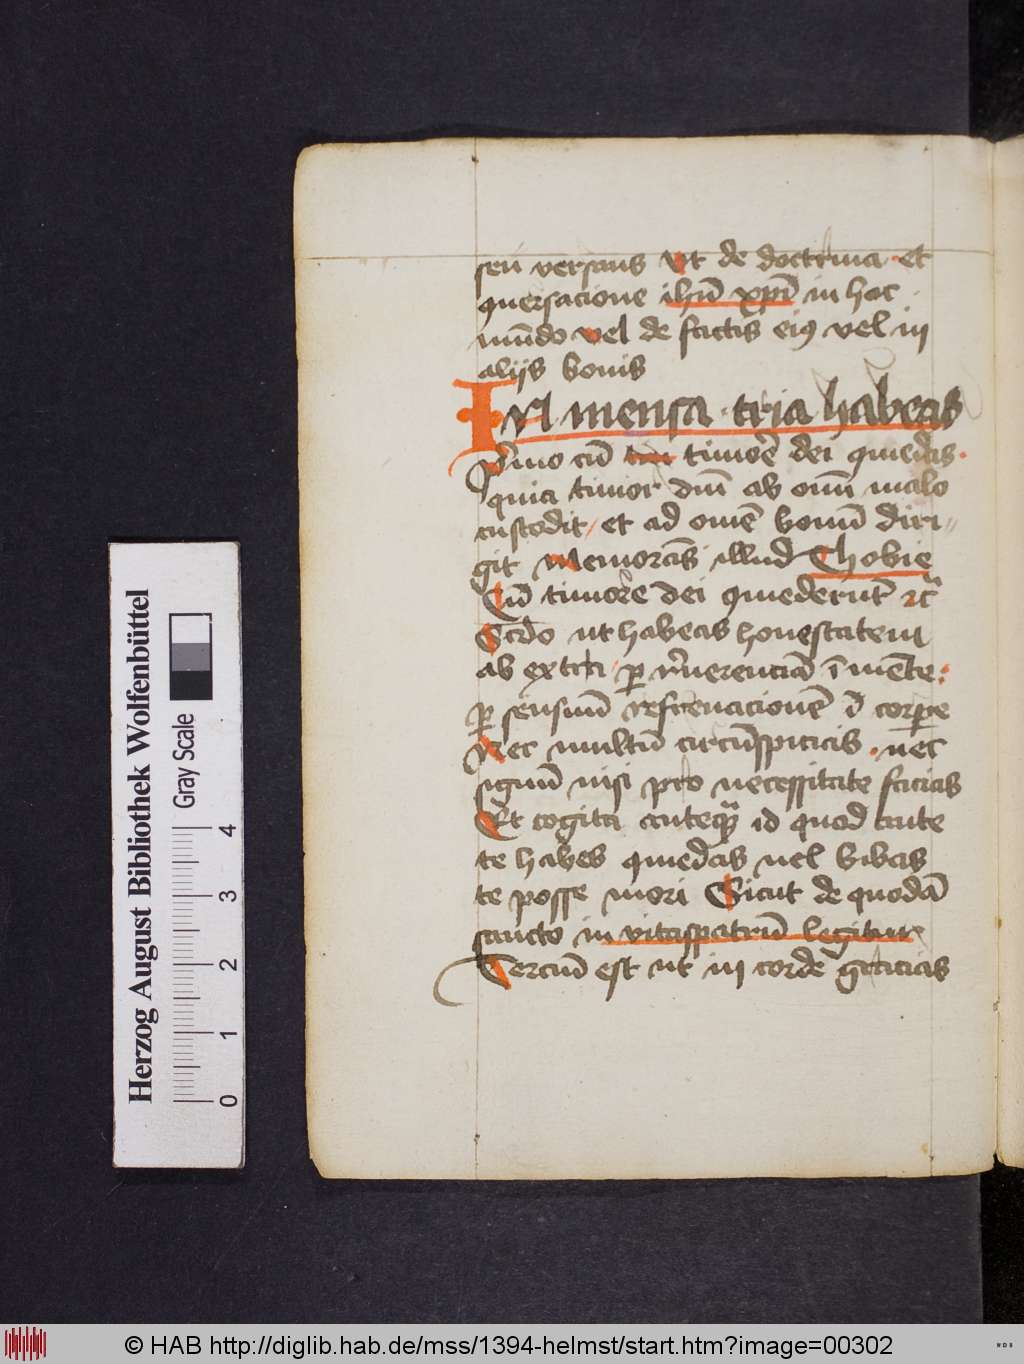 seu versans Ut de doctrina et
ꝯuersacione ihū xpī in hac
mūdo vel de factis eiꝯ vel in
aliis bonis
IN mensa tria habeas
Pͥmo cū timoꝛē dei ꝯmedas
quia timor dn̄i ab om̄i malo
custodit et ad om̄e bonū diri
git Memorās illud Thobie
Cū timore dei ꝯmederūt ⁊c̄
Scd̄o ut habeas honestatem
ab extra ꝑ reuerenciā ī mente
ꝑ sensuū refrenacionē ī corpore
Nec multū circūspicias nec
signū nisi pro necessitate facias
Et cogita anteqͣ id quod ante
te habes ꝯmedas uel bibas
te posse mori Sicut de quodā
sancto in vitaspatrū legitur
Terciū est ut in corde gracias
Herzog August Bibliothek Wolfenbüttel
Gray Scale
0 1 2 3 4
© HAB http://diglib.hab.de/mss/1394-helmst/start.htm?image=00302